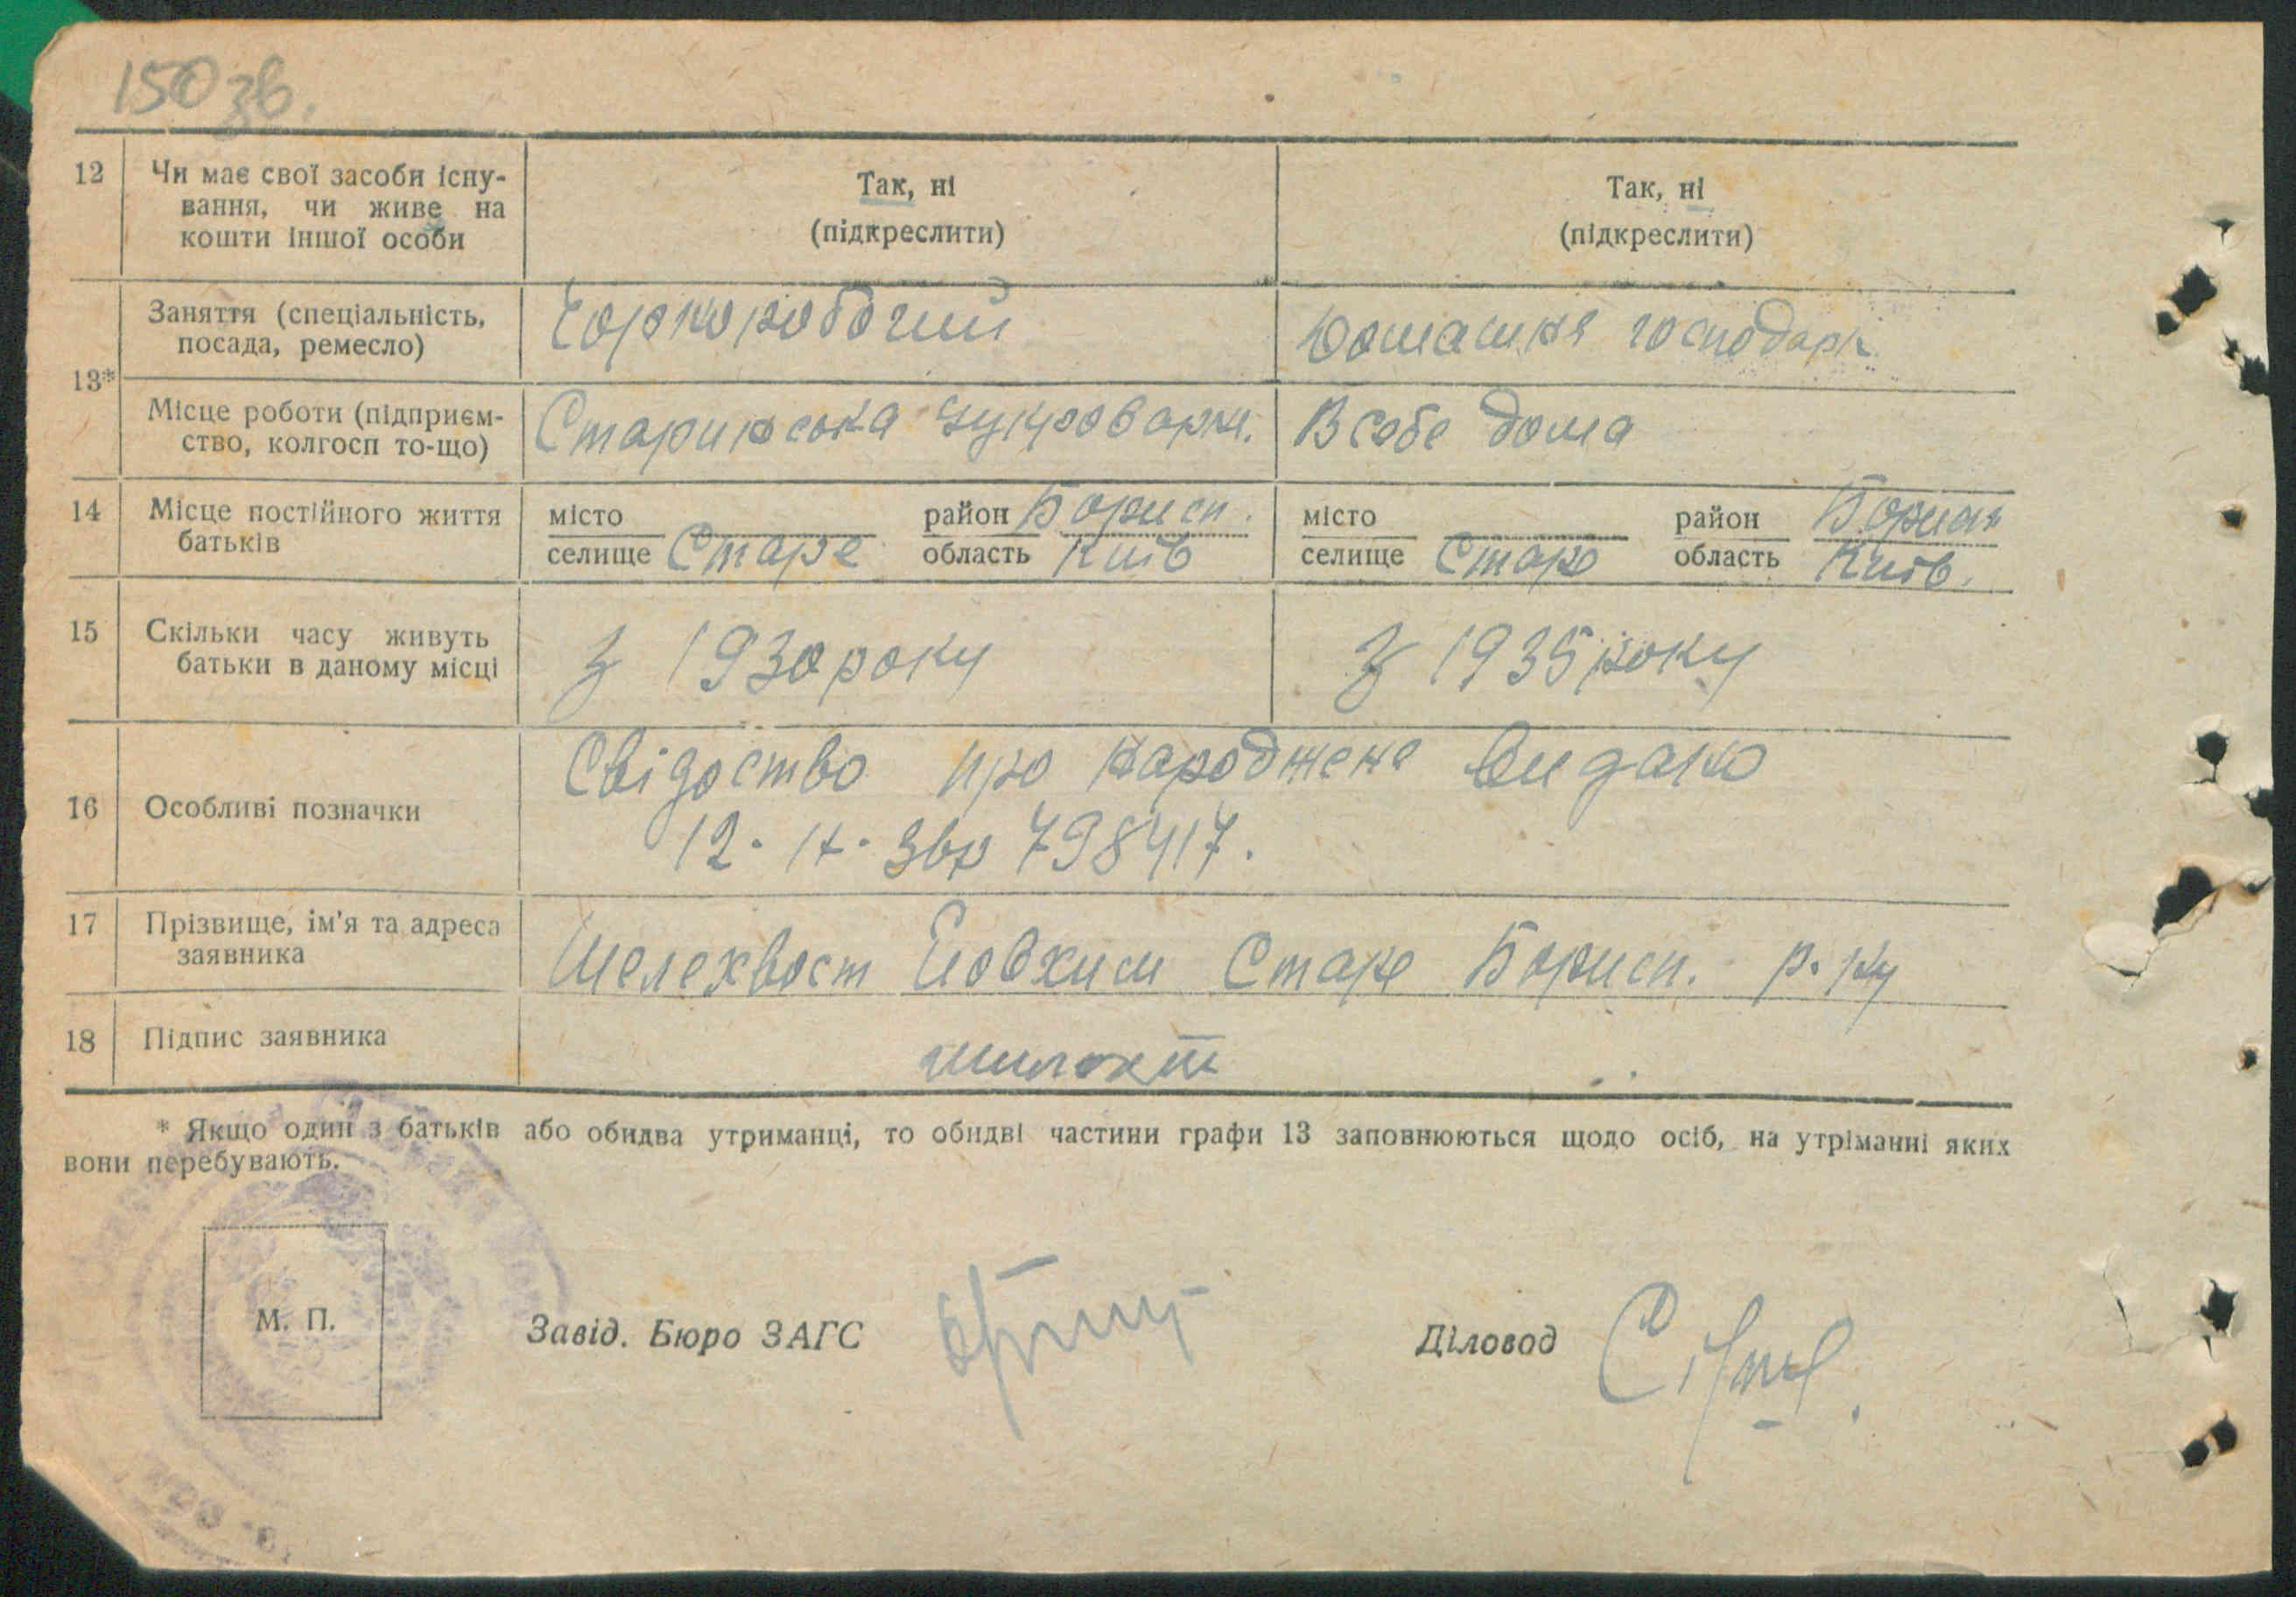 150 зв.
12 Чи має свої засоби існу-
вання, чи живе на
кошти іншої особи
Так, ні
(підкреслити)
Так, ні
(підкреслити)
13*
Заняття (спеціальність,
посада, ремесло)
Чорноробочий
Домашня господарк
Місце роботи (підприєм-
ство, колгосп то-що)
Старинська цукроварн.
В себе дома
14 Місце постійного життя
батьків
місто район Борисп.
селище Старе область Київ
місто район Борисп
селище Старе область Київ.
15 Скільки часу живуть
батьки в даному місці
З 1930 року
З 1935 року
16 Особливі позначки
Свідоство про народжене видано
798417.
17 Прізвище, ім'я та адреса
заявника
Шелехвост Йовхим Старе Борисп. р. ну
18 Підпис заявника
* Якщо один з батьків або обидва утриманці, то обидві частини графи 13 заповнюються щодо осіб, на утріманні яких
вони перебувають.
М. П.
Завід. Бюро ЗАГС
Діловод